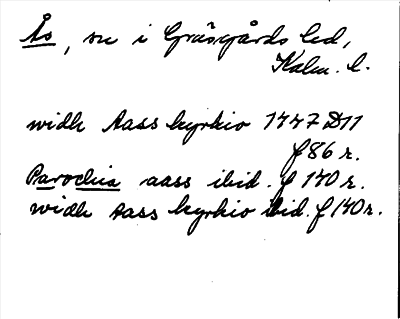 Ås, sn i Gräsgårds hd,
Kalm. l.
widh Aass kyrkio 1447 D11
f 86 r.
Parochia aass ibid. f 140 r.
widh aass kyrkio ibid. f 140 r.